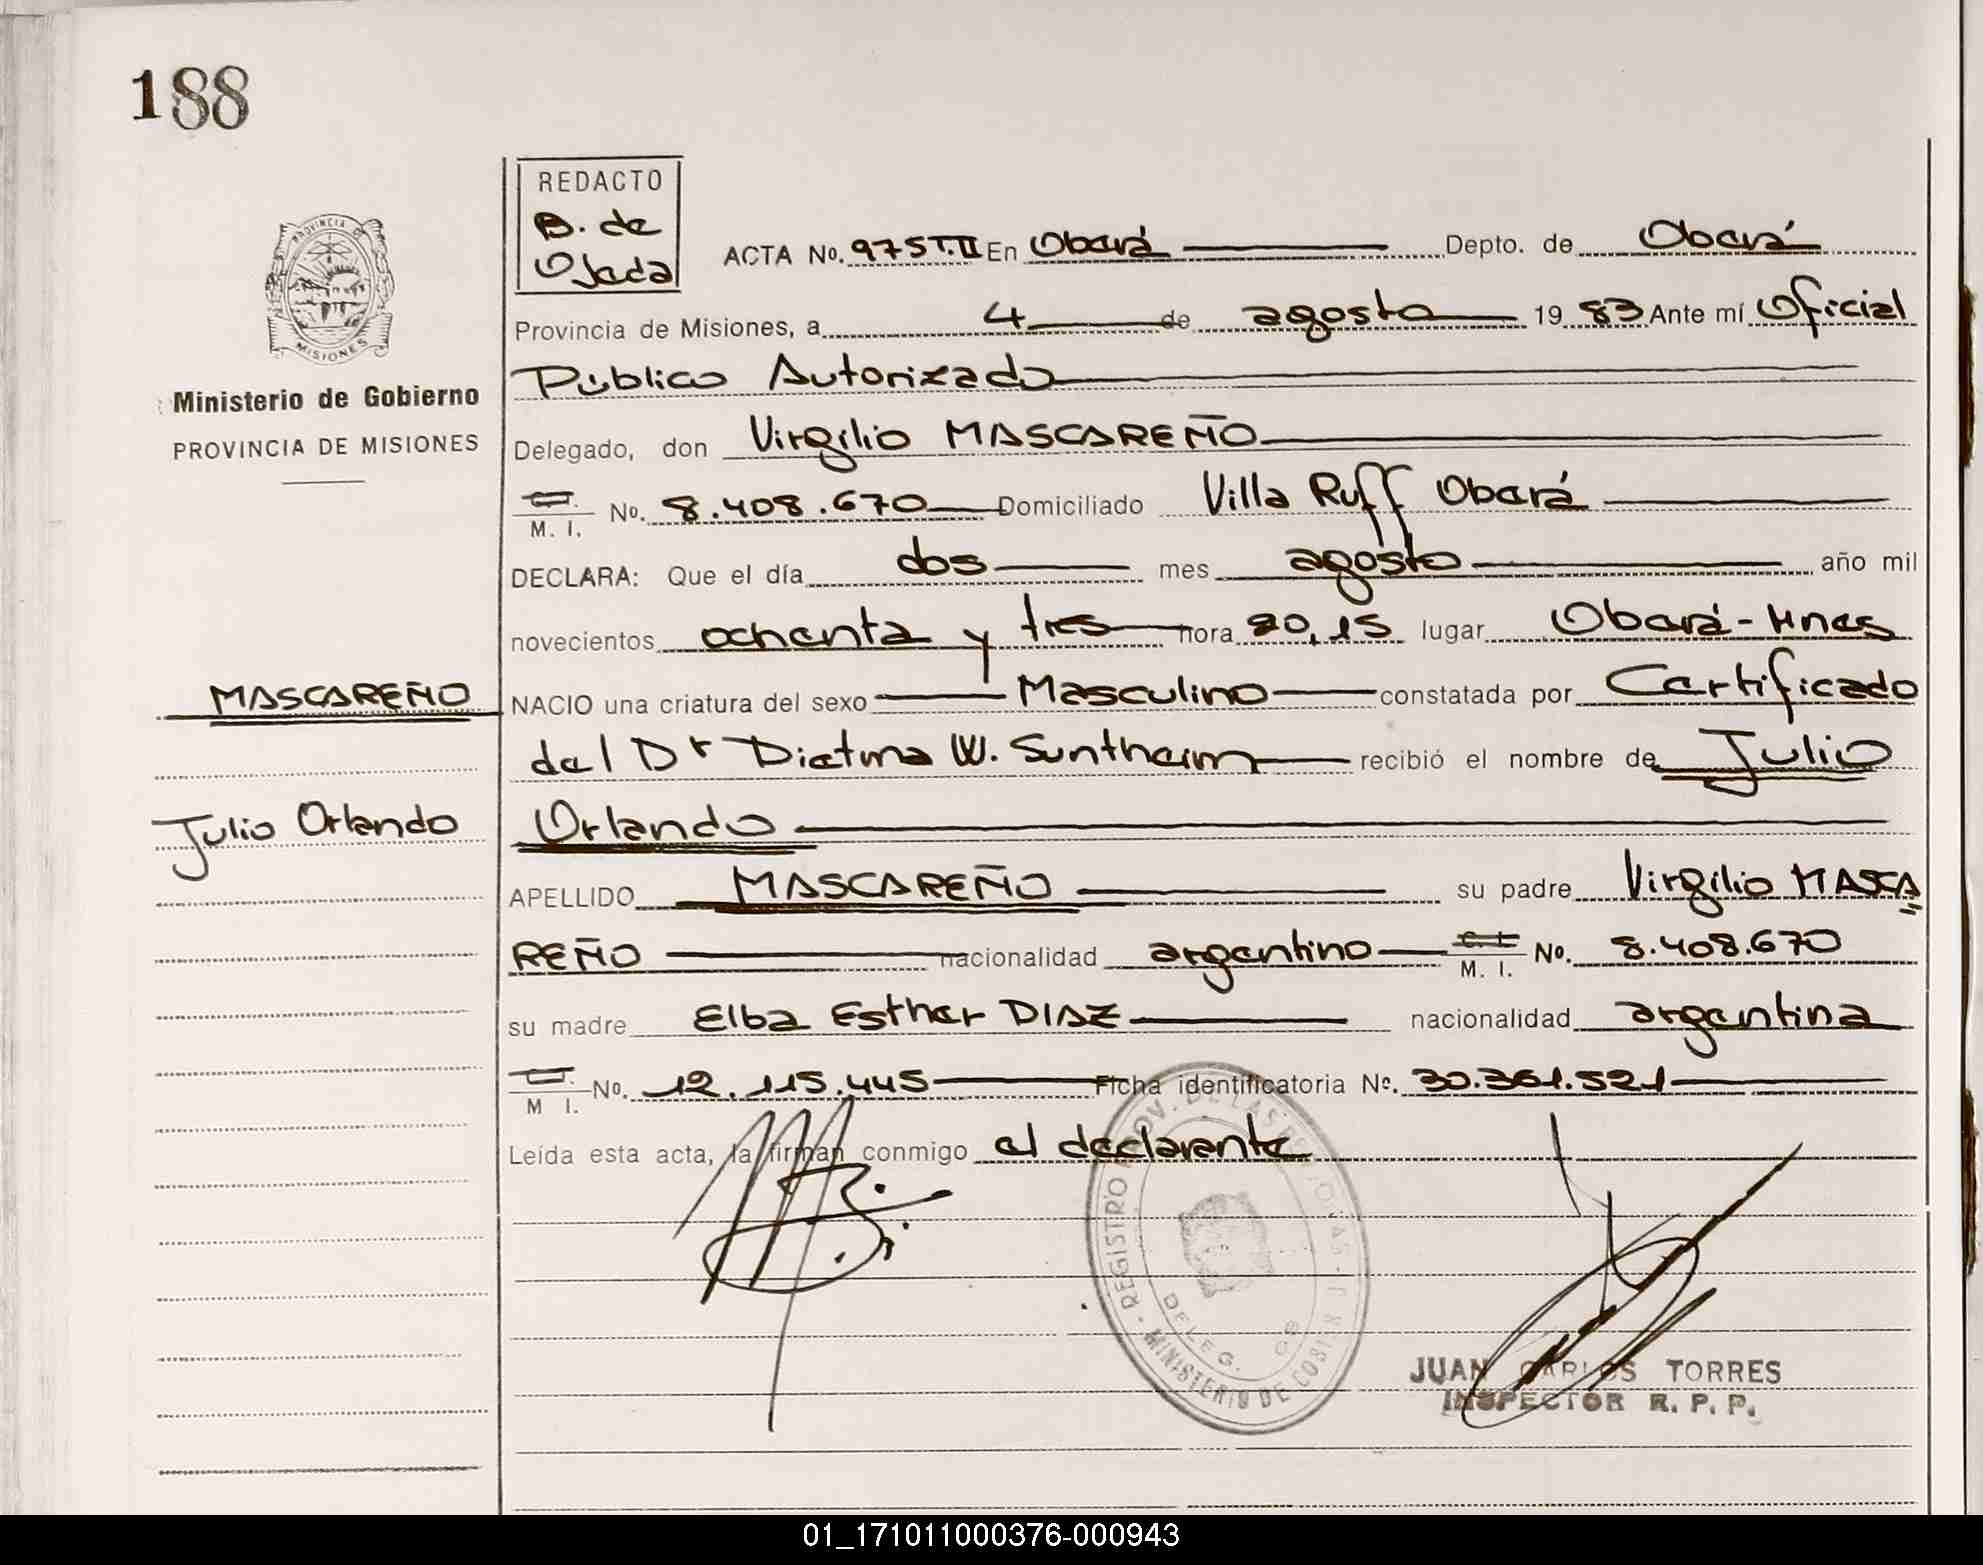 188
REDACTO
B. de
Ojeda
ACTA No. 975 T.II En Oberá Depto. de Oberá
Provincia de Misiones, a 4 de agosto 1983 Ante mí Oficial
Público Autorizado
PROVINCIA DE
MISIONES
Ministerio de Gobierno
PROVINCIA DE MISIONES
Delegado, don Virgilio MASCAREÑO
M. I. No. 8.408.670 Domiciliado Villa Ruff Oberá
DECLARA: Que el día dos mes agosto año mil
novecientos ochenta y tres hora 20,15 lugar Oberá-Mnes
MASCAREÑO
NACIO una criatura del sexo Masculino constatada por Certificado
del Dr W. recibió el nombre de Julio
Julio Orlando
Orlando
APELLIDO MASCAREÑO su padre Virgilio MASCA
REÑO nacionalidad argentino C. I. M. I. No. 8.408.670
su madre Elba Esther DIAZ nacionalidad argentina
M I. No. 12.115.445 Ficha identificatoria No. 30.361.521
Leída esta acta, la firman conmigo el declarante
REGISTRO PROV. DE LAS PERSONAS
DELEG.
MINISTERIO DE GOBIER
JUAN CARLOS TORRES
INSPECTOR R. P. P.
01_171011000376-000943